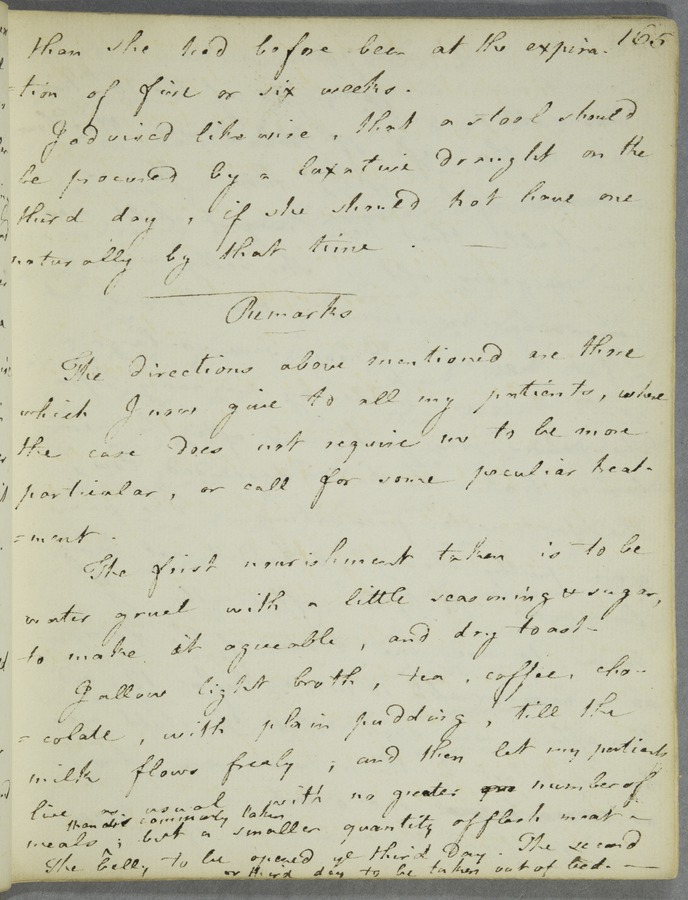 155
than she had before been at the expira-
-tion of five or six weeks.
I advised likewise, that a stool should
be procured by a laxative draught on the
third day, if she should not have one
naturally by that time. —
Remarks
The directions above mentioned are those
which I now give to all my patients, where
the case does not require me to be more
particular, or call for some peculiar treat-
=ment.
The first nourishment taken is to be
water gruel with a little seasoning & sugar,
to make it agreeable, and dry toast-
I allow light broth, tea, coffee, cho-
=colate, with plain pudding, till the
milk flows freely; and then let my patients
live as usual with no greater number of
than is commonly taken
meals; but a smaller quantity of flesh meat -
The belly to be opened ye third Day. The second
or third day to be taken out of bed. —